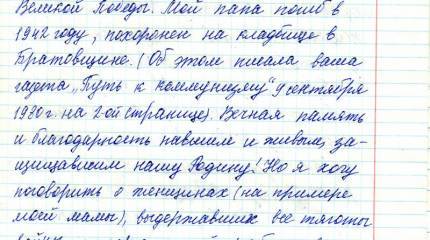 Великой Победы. Мой папа погиб в
1942 году, похоронен на кладбище в
Братовщине. (Об этом писала ваша
газета „Путь к коммунизму“ 9 сентября
1980 г. на 2-ой странице). Вечная память
и благодарность павшим и живым, за-
щищавшим нашу Родину! Но я хочу
поговорить о женщинах (на примере
моей мамы), выдержавших все тяготы